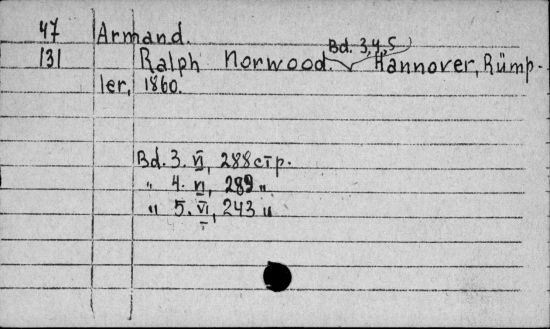 47 Armand.
131 Ralph Norwood. Bd. 3,4,5 Hannover, Rümp-
ler, 1860.
Bd. 3. VI, 288 стр.
" 4. VI, 289 "
" 5. VI, 243 "